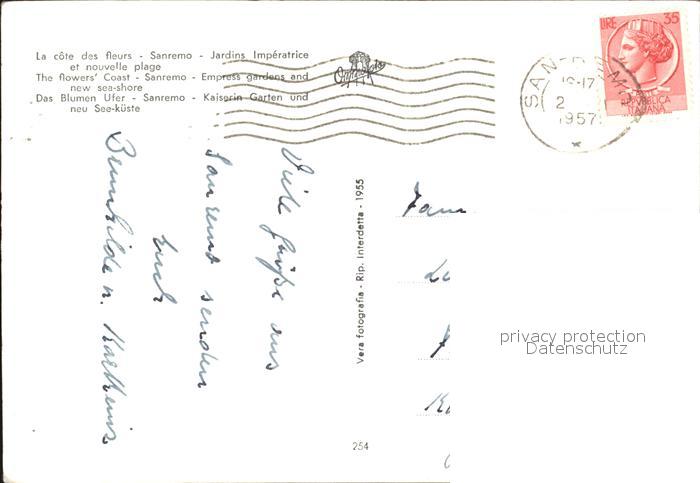 La côte des fleurs - Sanremo - Jardins Impératrice
et nouvelle plage
The flowers' Coast - Sanremo - Empress gardens and
new sea-shore
Das Blumen Ufer - Sanremo - Kaiserin Garten und
neu See-küste
LIRE 35
REPVBBLICA
ITALIANA
SAN
18-17
2
1957
Viele Grüße aus
Sanremo senden
Euch
Brunhilde u. Karlheinz
Vera fotografia - Rip. Interdetta - 1955
Fam
privacy protection
Datenschutz
254